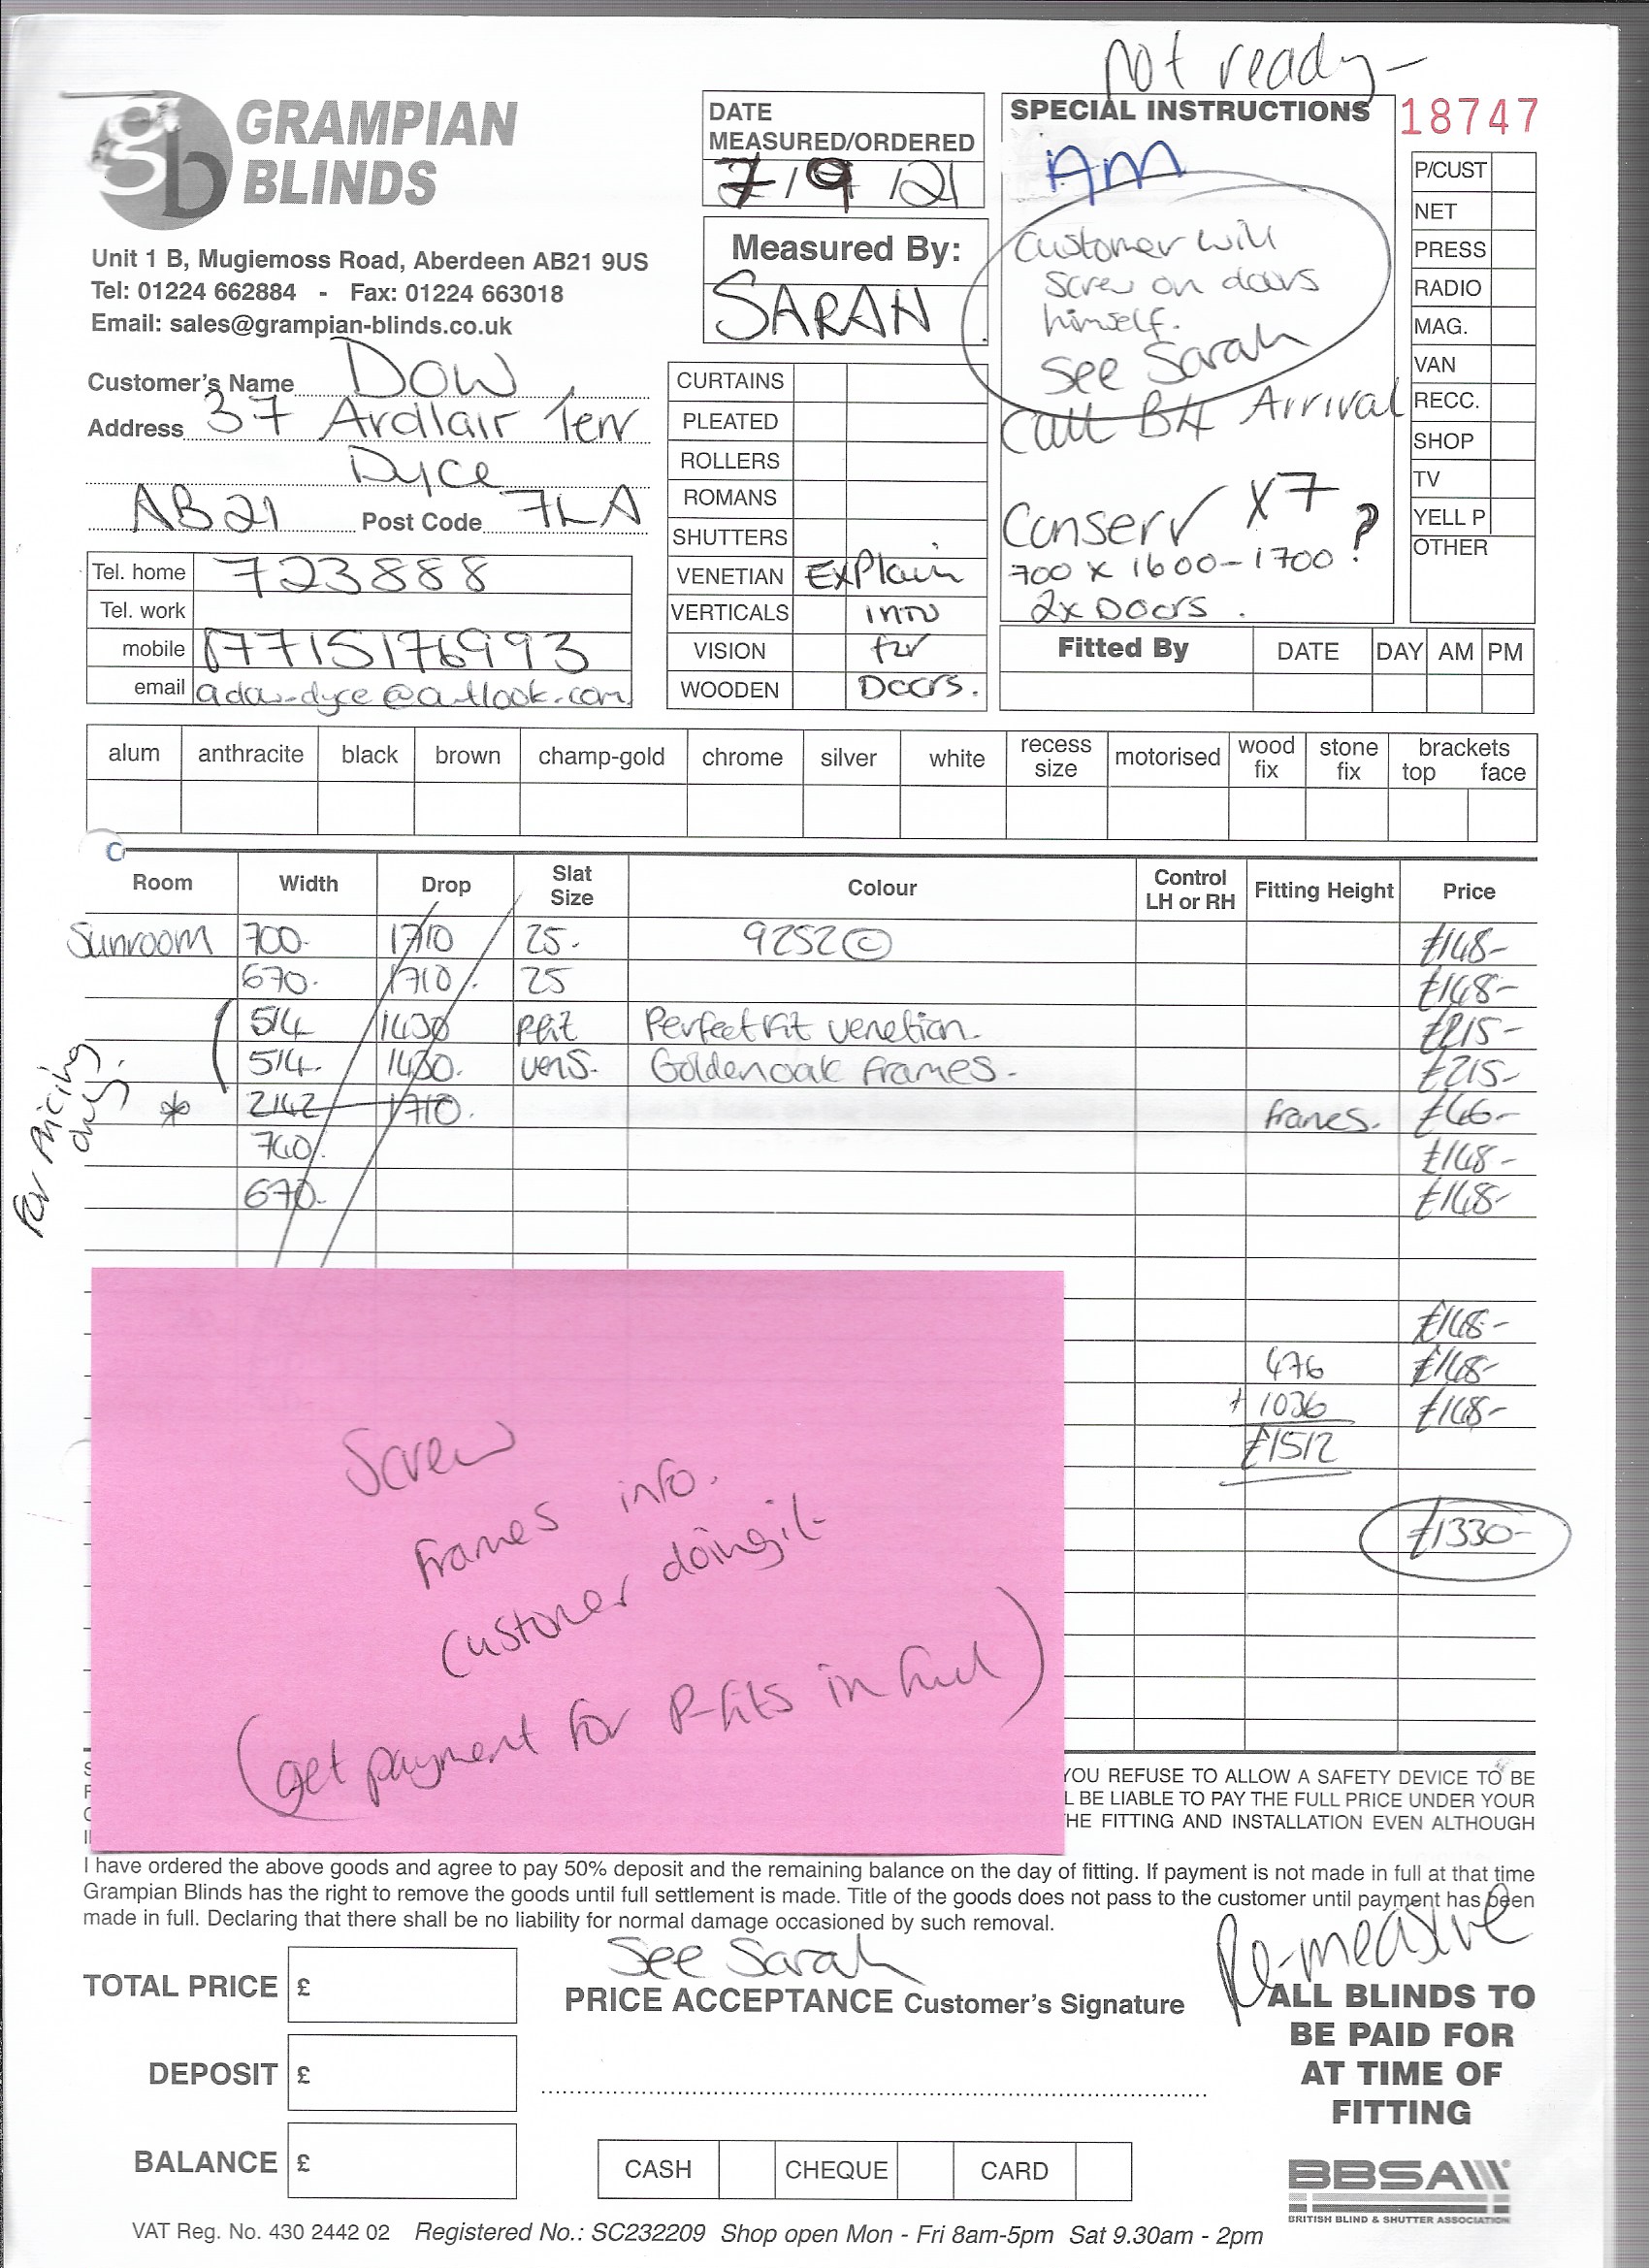 not ready -
GRAMPIAN
BLINDS
Unit 1 B, Mugiemoss Road, Aberdeen AB21 9US
Tel: 01224 662884 - Fax: 01224 663018
Email: sales@grampian-blinds.co.uk
DATE
MEASURED/ORDERED
7/9/21
Measured By:
SARAH
SPECIAL INSTRUCTIONS
18747
AM
Customer will
screw on doors
himself.
See Sarah
Call B4 Arrival
Conserv X7
700 x 1600-1700 ?
2x Doors.
P/CUST
NET
PRESS
RADIO
MAG.
VAN
RECC.
SHOP
TV
YELL P
OTHER
Customer's Name Dow
Address 37 Ardlair Terr
Dyce
AB21 Post Code 7LA
Tel. home 723888
Tel. work
mobile 07715176993
email adow-dyce@outlook.com
CURTAINS
PLEATED
ROLLERS
ROMANS
SHUTTERS
VENETIAN Explain
VERTICALS into
VISION for
WOODEN Doors.
Fitted By DATE DAY AM PM
alum anthracite black brown champ-gold chrome silver white recess size motorised wood fix stone fix brackets top face
Room Width Drop Slat Size Colour Control LH or RH Fitting Height Price
Sunroom 700- 1710 25. 9252 © £148-
670- 1710 25 £148-
514 1430 Pfit Perfect Fit venetian. £215-
514. 1430. vens. Golden oak frames. £215-
* 2142 1710. frames. £46-
740 £148-
670- £148-
For Pricing only.
£148-
476 £148-
+ 1036 £148-
£1512
£1330-
Screw
frames info.
Customer doing it
(get payment for P-fits in full)
YOU REFUSE TO ALLOW A SAFETY DEVICE TO BE
L BE LIABLE TO PAY THE FULL PRICE UNDER YOUR
HE FITTING AND INSTALLATION EVEN ALTHOUGH
I have ordered the above goods and agree to pay 50% deposit and the remaining balance on the day of fitting. If payment is not made in full at that time
Grampian Blinds has the right to remove the goods until full settlement is made. Title of the goods does not pass to the customer until payment has been
made in full. Declaring that there shall be no liability for normal damage occasioned by such removal.
See Sarah
Re-measure
TOTAL PRICE £
PRICE ACCEPTANCE Customer's Signature
DEPOSIT £
BALANCE £
CASH CHEQUE CARD
ALL BLINDS TO
BE PAID FOR
AT TIME OF
FITTING
BBSA
BRITISH BLIND & SHUTTER ASSOCIATION
VAT Reg. No. 430 2442 02 Registered No.: SC232209 Shop open Mon - Fri 8am-5pm Sat 9.30am - 2pm